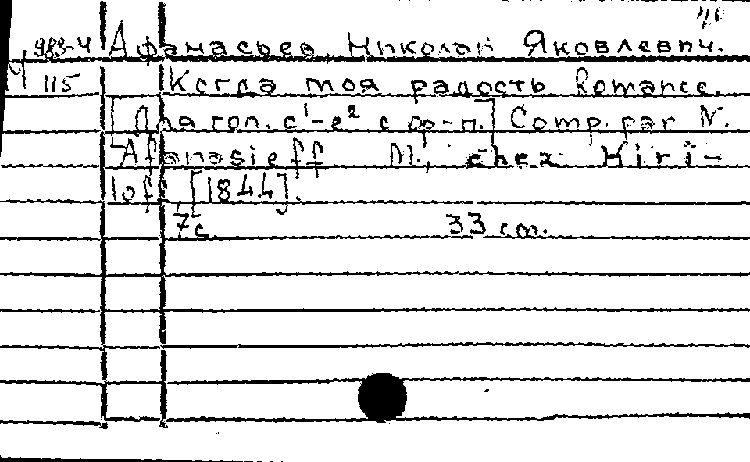 983-4 Афанасьев, Николай Яковлевич.
115 Когда моя радость Romance.
[Для гол. c¹-e² с ф-п.] Comp. par N.
Afanasieff M., chez Kiri-
loff, [1844].
7 с. 33 cm.